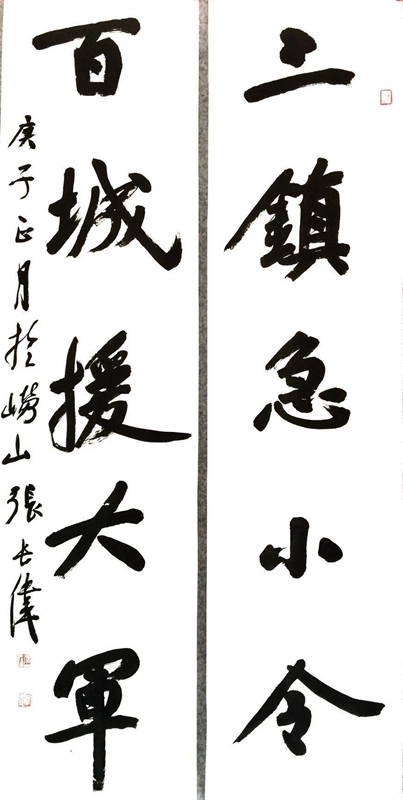 三鎮急小令
百城援大軍
庚子正月於嶗山張長偉